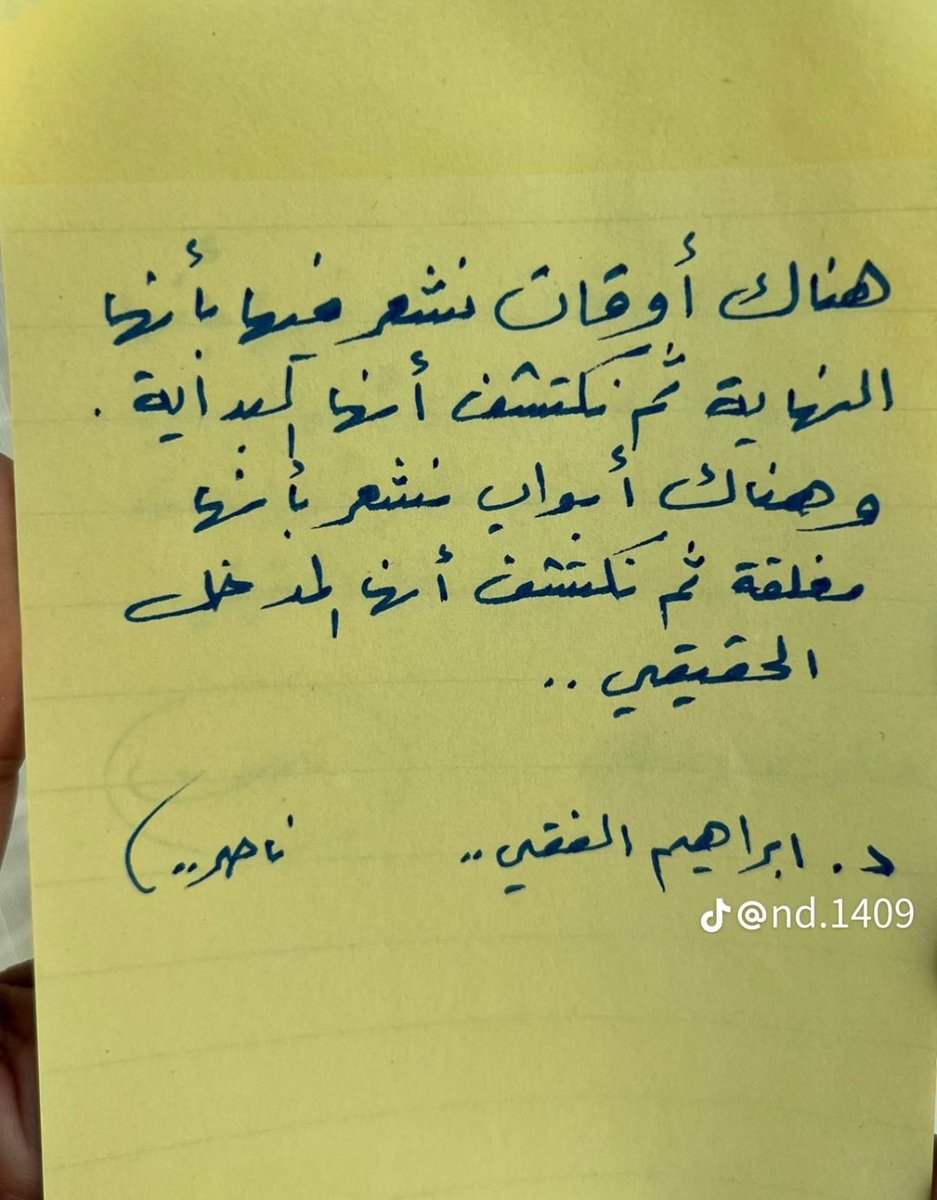 هناك أوقات نشعر فيها بأنها
النهاية ثم نكتشف أنها البداية .
وهناك أبواب نشعر بأنها
مغلقة ثم نكتشف أنها المدخل
الحقيقي ..
د. ابراهيم الفقي .. ناصر ..
@nd.1409